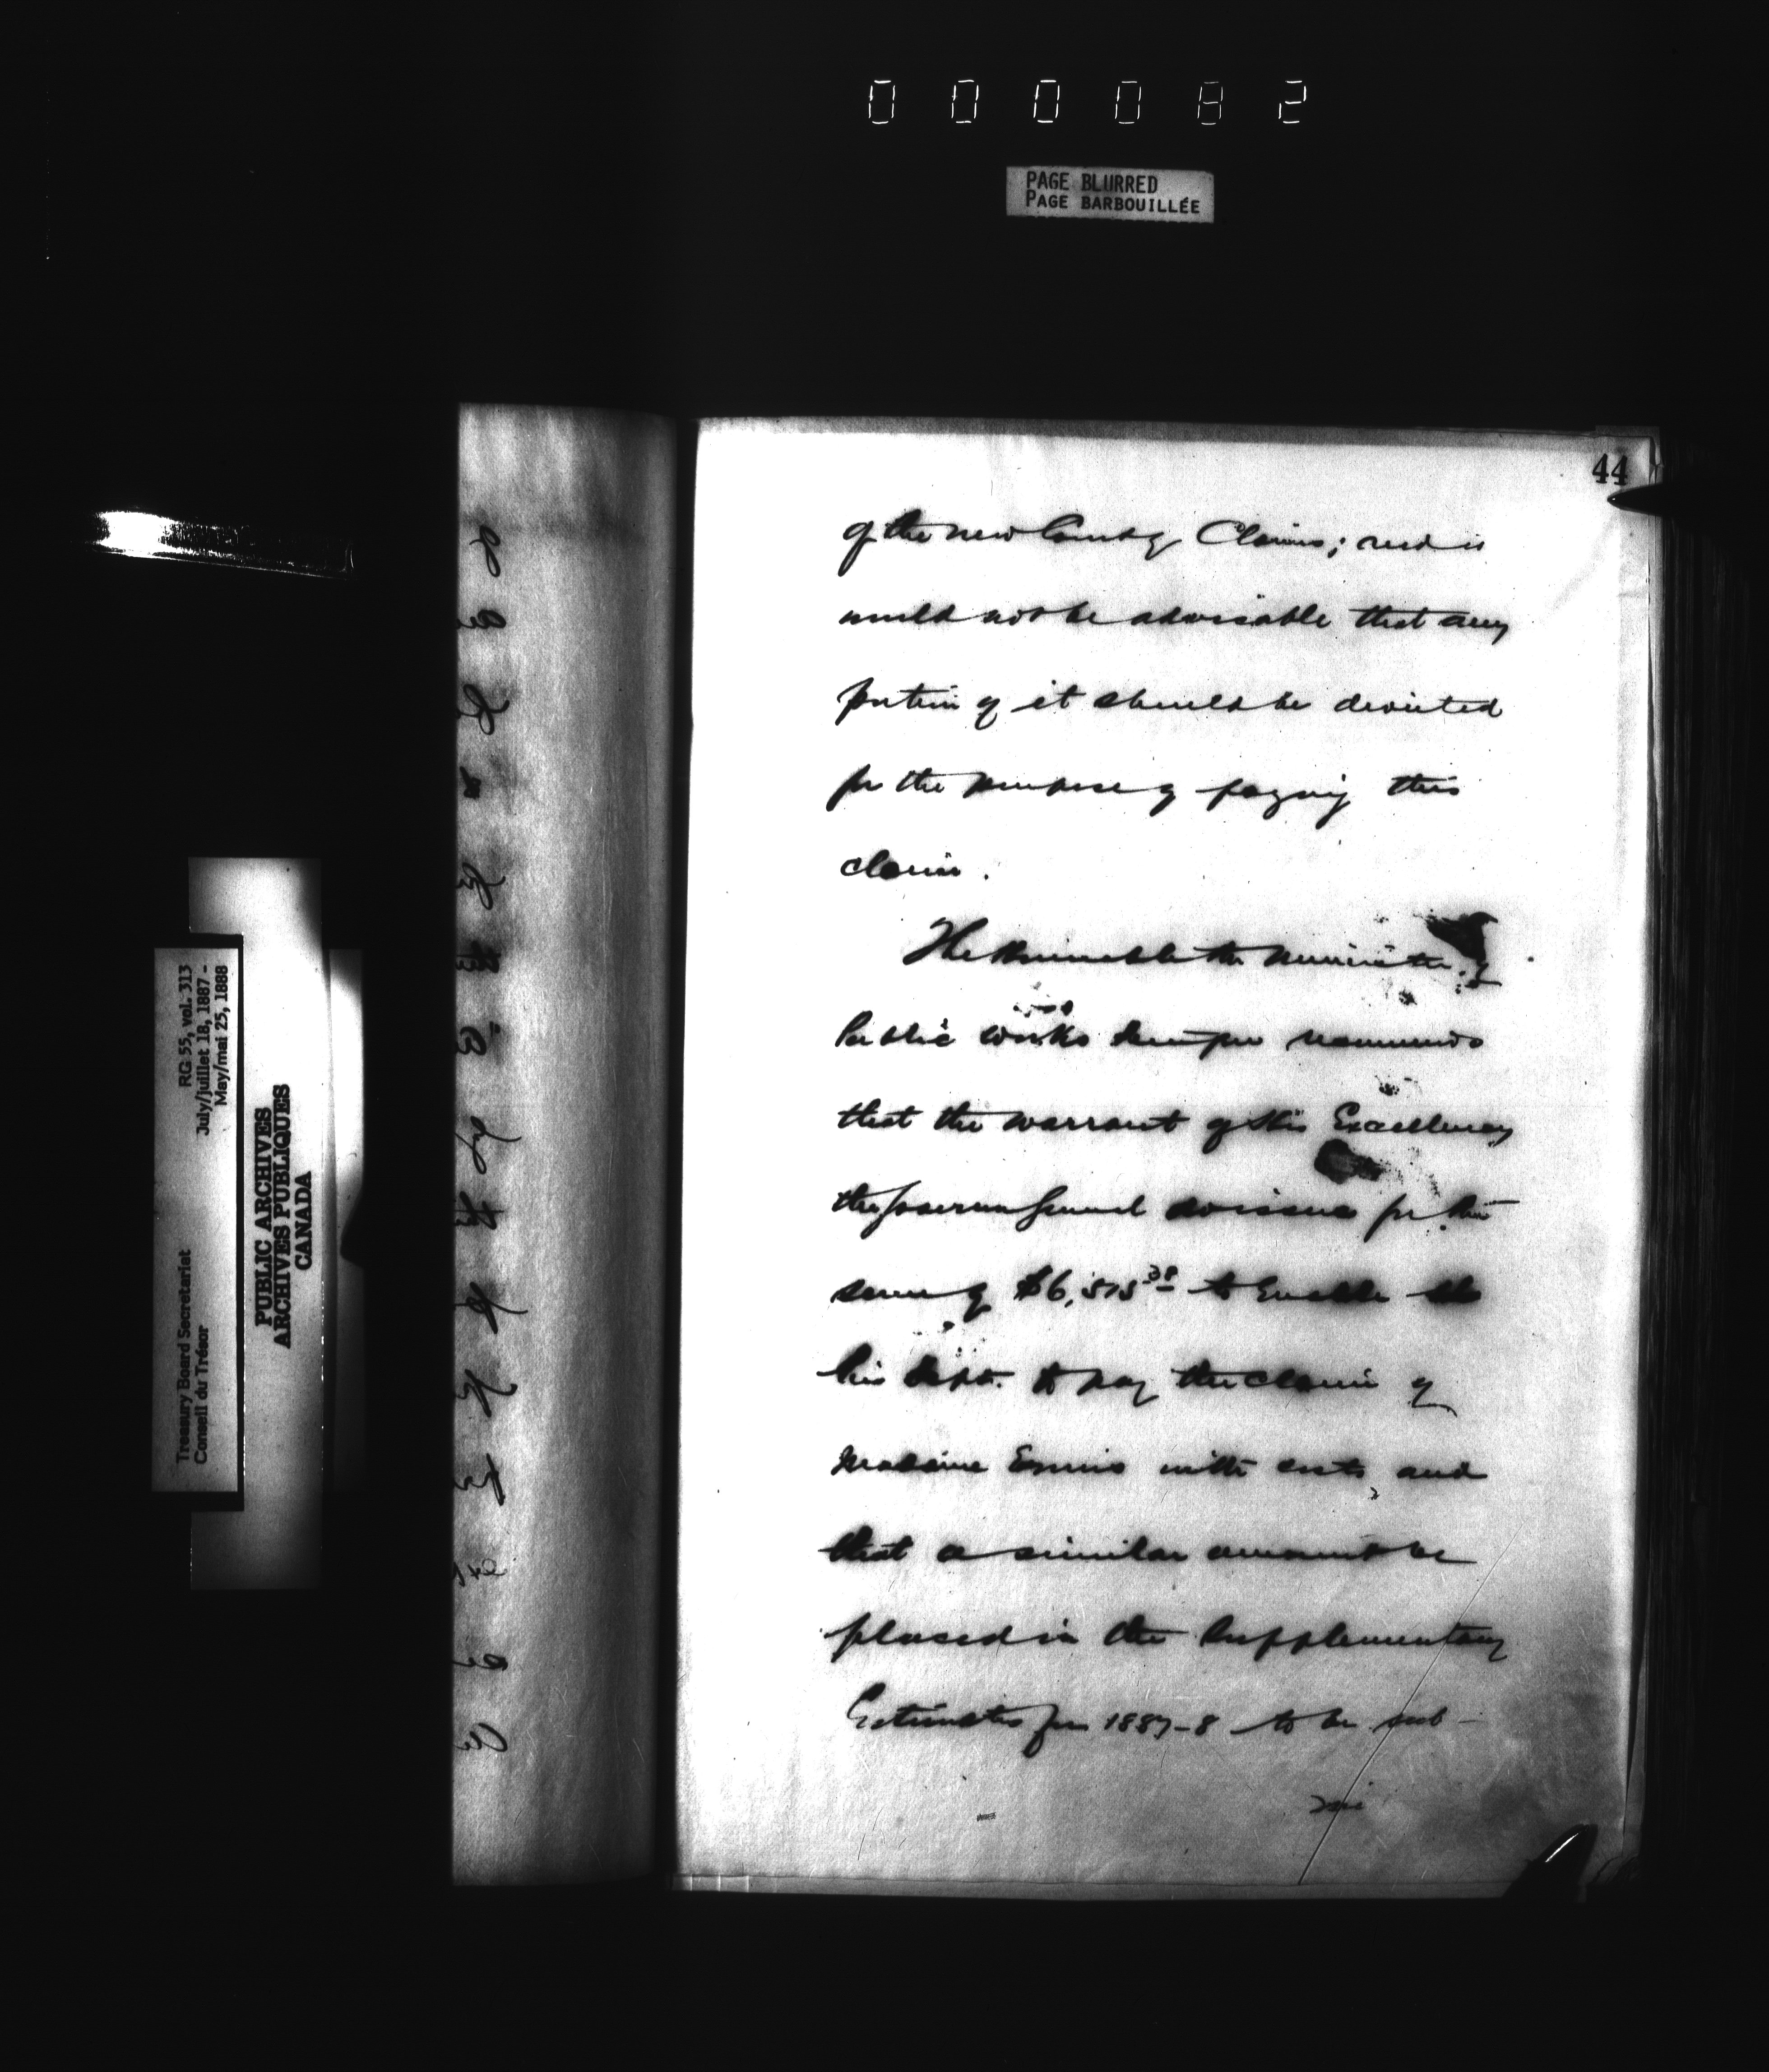 000082
PAGE BLURRED
PAGE BARBOUILLÉE
44
of the new Court of Claims; and it
would not be advisable that any
portion of it should be diverted
for the purpose of paying this
claim.
The Honorable the Minister of
Public Works therefore recommends
that the warrant of His Excellency
the Governor General do issue for the
sum of $6,515 38 to enable
his Dept. to pay the claim of
Madame Ennis with costs, and
that a similar amount be
placed in the Supplementary
Estimates for 1887-8 to be sub-
mi
Treasury Board Secretariat RG 55, vol. 313
Conseil du Trésor July/juillet 18, 1887 -
May/mai 25, 1888
PUBLIC ARCHIVES
ARCHIVES PUBLIQUES
CANADA